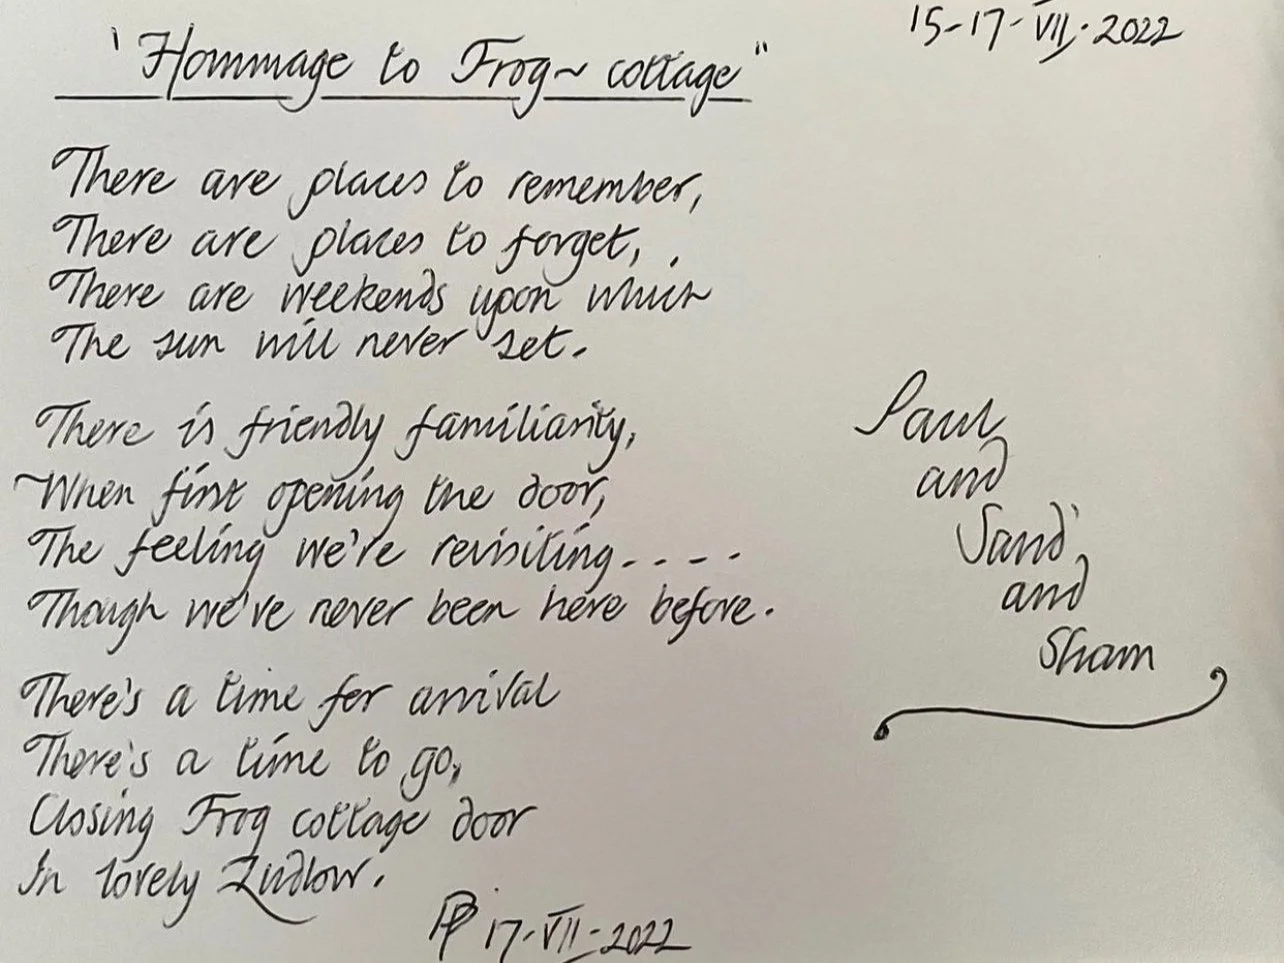 15-17-VII-2022
"Hommage to Frog~cottage"
There are places to remember,
There are places to forget,
There are weekends upon which
The sun will never set.
There is friendly familiarity,
When first opening the door,
The feeling we're revisiting.....
Though we've never been here before.
There's a time for arrival
There's a time to go,
Closing Frog cottage door
In lovely Ludlow.
PP 17-VII-2022
Paul
and
Sand'
and
Sham